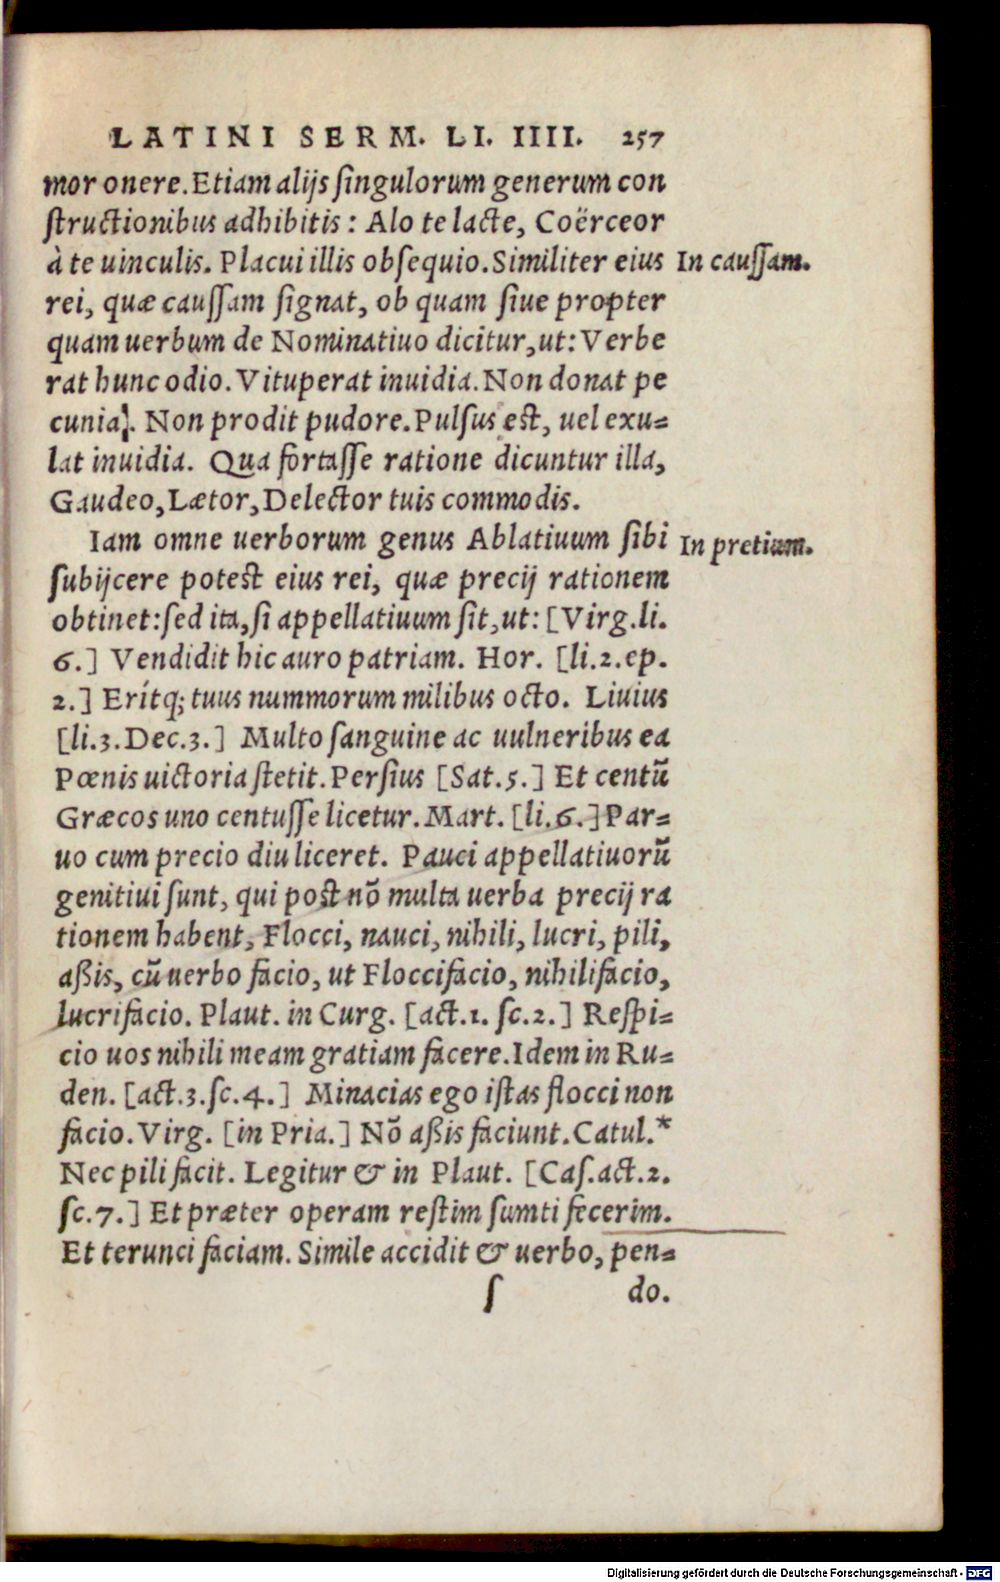 LATINI SERM. LI. IIII. 257
mor onere. Etiam alijs ſingulorum generum con
ſtructionibus adhibitis : Alo te lacte, Coërceor
à te uinculis. Placui illis obſequio. Similiter eius
In cauſſam.
rei, quæ cauſſam ſignat, ob quam ſiue propter
quam uerbum de Nominatiuo dicitur, ut: Verbe
rat hunc odio. Vituperat inuidia. Non donat pe
cunia. Non prodit pudore. Pulſus eſt, uel exu-
lat inuidia. Qua fortaſſe ratione dicuntur illa,
Gaudeo, Lætor, Delector tuis commodis.
Iam omne uerborum genus Ablatiuum ſibi
In pretium.
ſubijcere poteſt eius rei, quæ precij rationem
obtinet: ſed ita, ſi appellatiuum ſit, ut: [Virg. li.
6.] Vendidit hic auro patriam. Hor. [li. 2. ep.
2.] Erítq; tuus nummorum milibus octo. Liuius
[li. 3. Dec. 3.] Multo ſanguine ac uulneribus ea
Pœnis uictoria ſtetit. Perſius [Sat. 5.] Et centũ
Græcos uno centuſſe licetur. Mart. [li. 6.] Par-
uo cum precio diu liceret. Pauci appellatiuorũ
genitiui ſunt, qui poſt nõ multa uerba precij ra
tionem habent, Flocci, nauci, nihili, lucri, pili,
aßis, cũ uerbo facio, ut Floccifacio, nihilifacio,
lucrifacio. Plaut. in Curg. [act. 1. ſc. 2.] Reſpi-
cio uos nihili meam gratiam facere. Idem in Ru-
den. [act. 3. ſc. 4.] Minacias ego iſtas flocci non
facio. Virg. [in Pria.] Nõ aßis faciunt. Catul.*
Nec pili facit. Legitur & in Plaut. [Caſ. act. 2.
ſc. 7.] Et præter operam reſtim ſumti fecerim.
Et terunci faciam. Simile accidit & uerbo, pen-
ſ do.
Digitalisierung gefördert durch die Deutsche Forschungsgemeinschaft - DFG